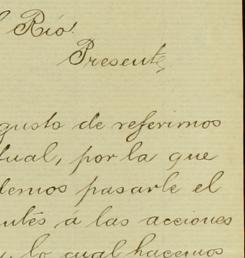 l Río.
Presente,
gusto de referirnos
tual, por la que
demos pasarle el
ntés á las acciones
lo cual hacemos